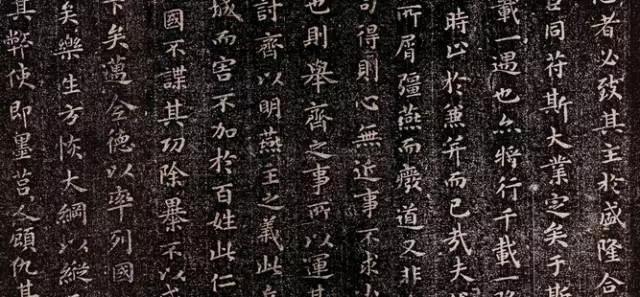 者必致其主於盛隆合
同苻斯大業定矣于斯
載一遇也亦將行千載一
時止於兼并而已哉夫
所屑彊燕而廢道又非
苟得則心無近事不求小
也則舉齊之事所以運其
討齊以明燕王之義此兵
城而害不加於百姓此仁
國不謀其功除暴不以
下矣邁全德以率列國
矣樂生方恢大綱以縱
其弊使即墨莒人顧仇其